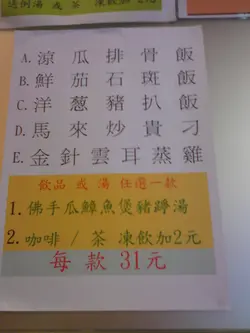 送例湯 或 茶 凍飲加2元
A. 涼瓜排骨飯
B. 鮮茄石斑飯
C. 洋葱豬扒飯
D. 馬來炒貴刁
E. 金針雲耳蒸雞
飲品 或 湯 任選一款
1. 佛手瓜鱆魚煲豬踭湯
2. 咖啡 / 茶 凍飲加2元
每款 31元